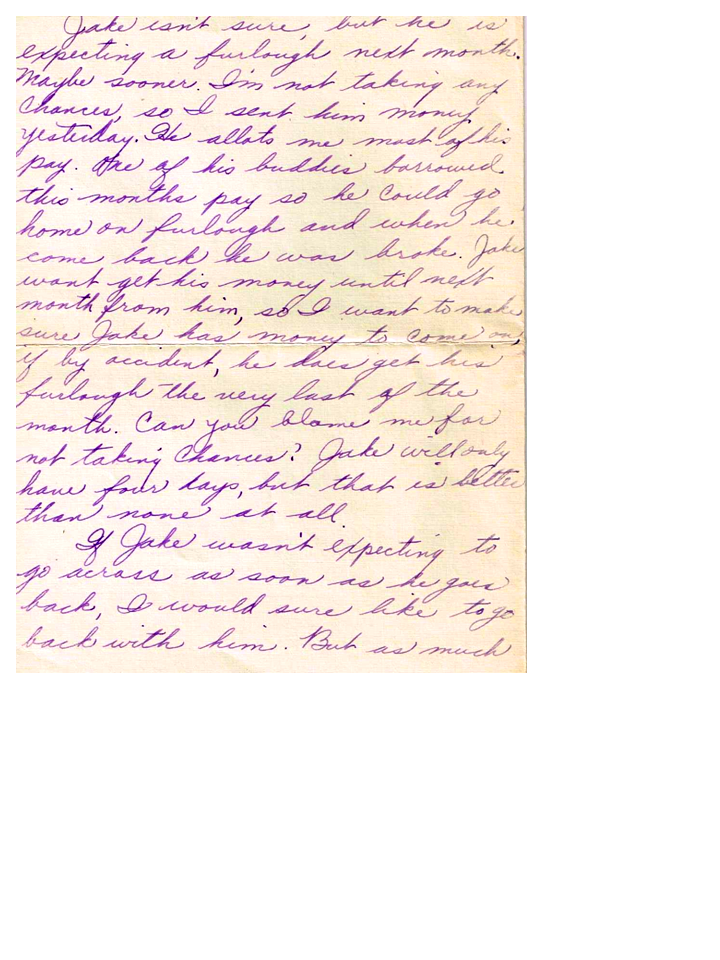 Jake isn't sure, but he is
expecting a furlough next month.
Maybe sooner. I'm not taking any
chances, so I sent him money
yesterday. He allots me most of his
pay. One of his buddies borrowed
this months pay so he could go
home on furlough and when he
come back he was broke. Jake
want get his money until next
month from him, so I want to make
sure Jake has money to come on,
if by accident, he does get his
furlough the very last of the
month. Can you blame me for
not taking chances? Jake will only
have four days, but that is better
than none at all.
If Jake wasn't expecting to
go across as soon as he goes
back, I would sure like to go
back with him. But as much